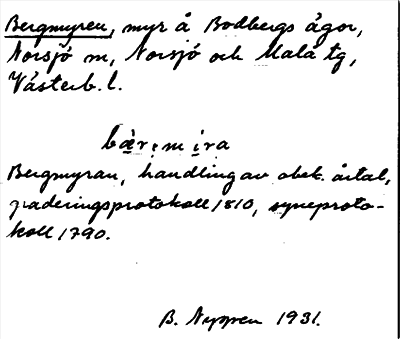 Bergmyren, myr å Bodbergs ägor,
Norsjö sn, Norsjö och Malå tg,
Västerb. l.
bærₑmi̠ra
Bergmyran, handling av obek. årtal,
graderingsprotokoll 1810, syneproto-
koll 1790.
B. Nygren 1931.